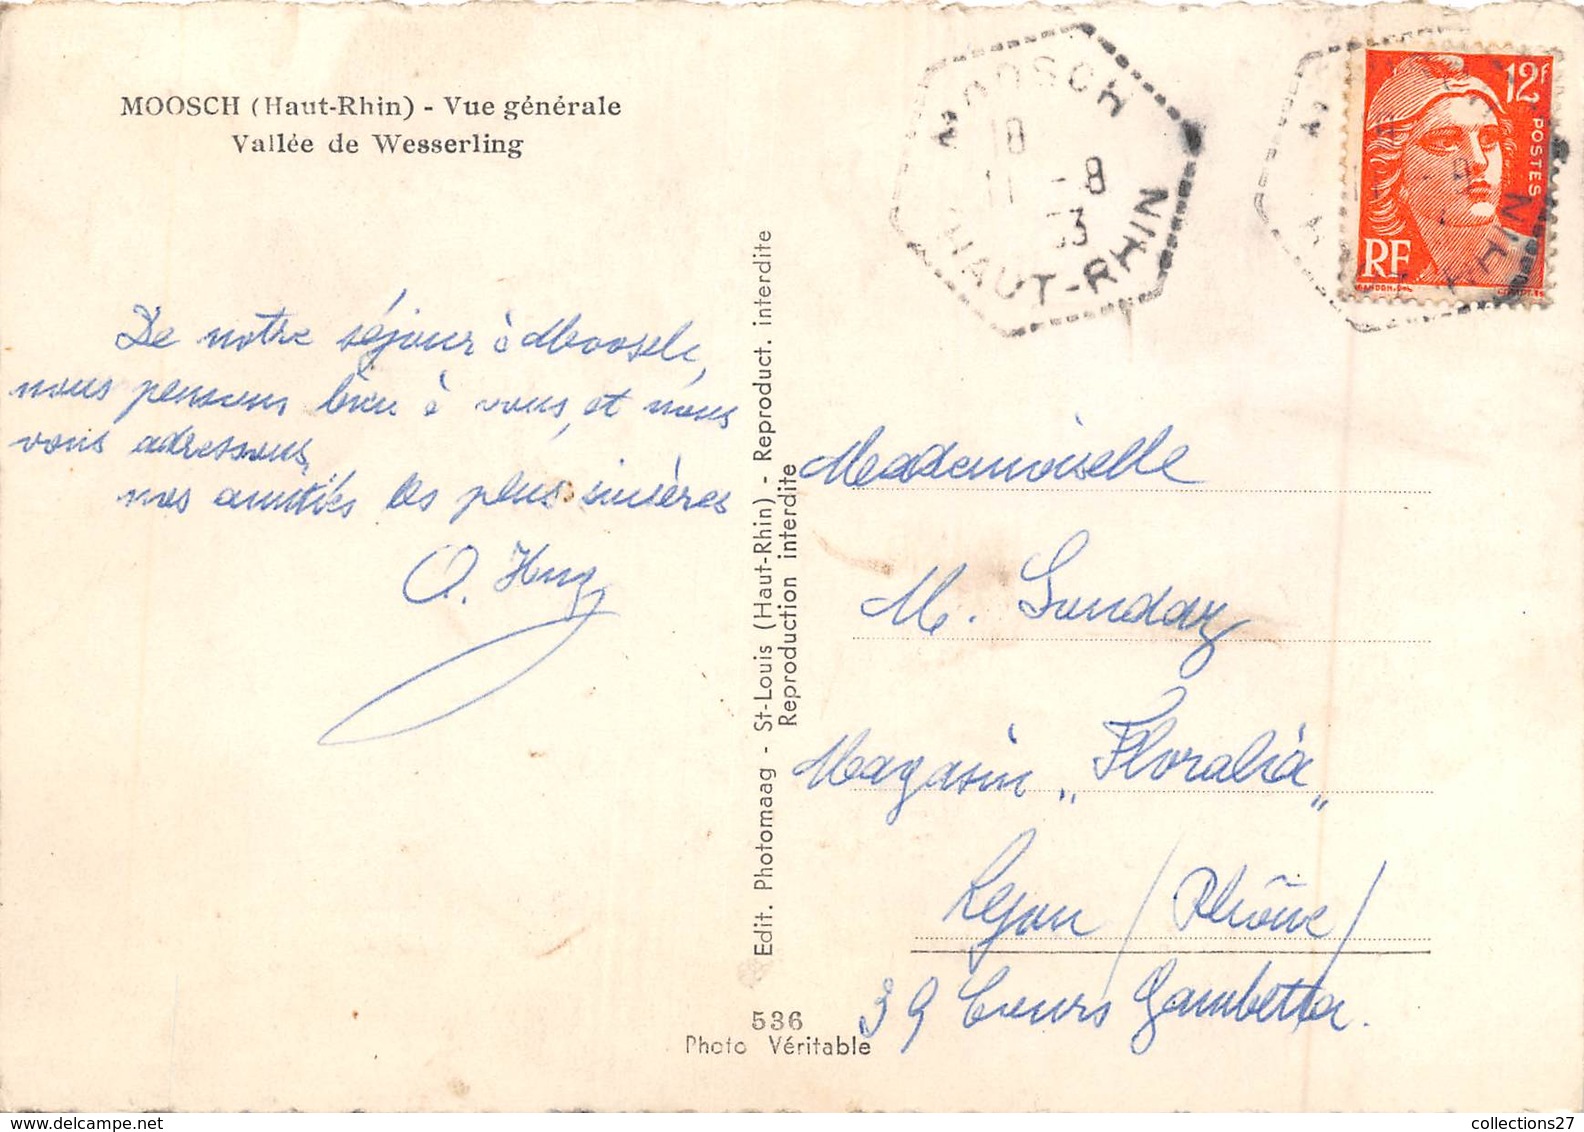 MOOSCH (Haut-Rhin) - Vue générale
Vallée de Wesserling
De notre séjour à Moosch,
nous pensons bien à vous, et nous
vous adressons,
nos amitiés les plus sincères
O. Hug
Edit. Photomaag - St-Louis (Haut-Rhin) - Reproduct. interdite
Reproduction interdite
536
Photo Véritable
MOOSCH
18
11 -8
53
HAUT-RHIN
12F
POSTES
RF
Mademoiselle
M. Sunday
Magasin „Floralia"
Lyon / Rhône /
39 Cours Gambetta.
collections27